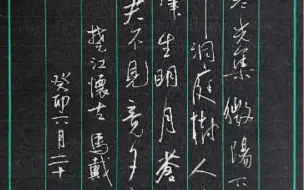 光集微陽下
洞庭樹人
生明月蒼
君不見竟夕
楚江懷古馬戴
癸卯六月二十